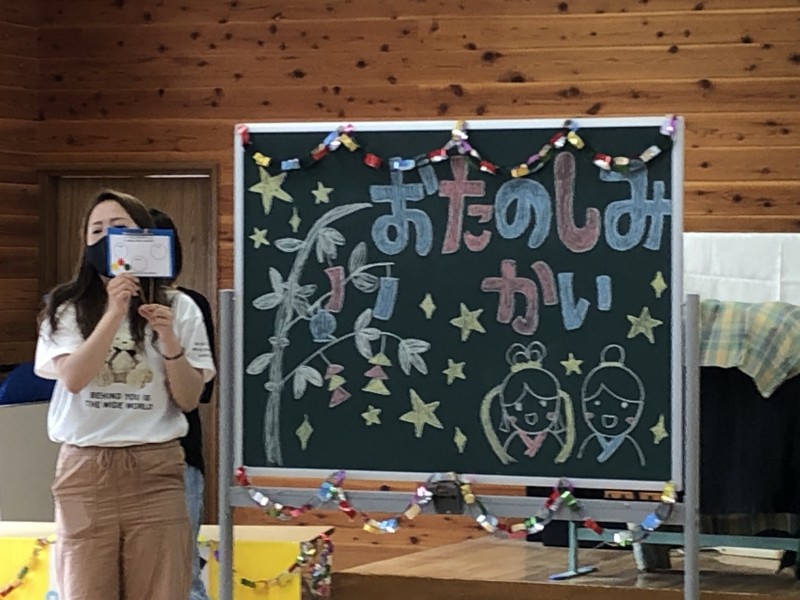 おたのしみ
かい
BEHIND YOU IS
THE WIDE WORLD